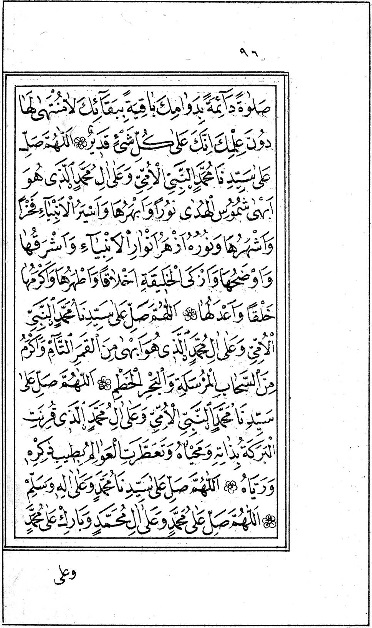 ٩٦
صَلٰوةً دَآئِمَةً بِدَوَامِكَ بَاقِيَةً بِبَقَآئِكَ لَامُنْتَهٰى لَهَا
دُونَ عِلْمِكَ اِنَّكَ عَلٰى كُلِّ شَىْءٍ قَدِيرٌ ۞ اَللّٰهُمَّ صَلِّ
عَلٰى سَيِّدِنَا مُحَمَّدٍ النَّبِىِّ الْاُمِّىِّ وَعَلٰى اٰلِ مُحَمَّدٍ الَّذِى هُوَ
اَبْهٰى شُمُوسِ الْهُدٰى نُورًا وَاَبْهَرُهَا وَاَسْيَرُ الْاَنْبِيَآءِ فَخْرًا
وَاَشْهَرُهَا وَنُورُهُ اَزْهَرُ اَنْوَارِ الْاَنْبِيَآءِ وَاَشْرَقُهَا
وَاَوْضَحُهَا وَاَزْكَى الْخَلِيقَةِ اَخْلَاقًا وَاَطْهَرُهَا وَاَكْرَمُهَا
خَلْقًا وَاَعْدَلُهَا ۞ اَللّٰهُمَّ صَلِّ عَلٰى سَيِّدِنَا مُحَمَّدٍ النَّبِىِّ
الْاُمِّىِّ وَعَلٰى اٰلِ مُحَمَّدٍ الَّذِى هُوَ اَبْهٰى مِنَ الْقَمَرِ التَّامِّ وَاَكْرَمُ
مِنَ السَّحَابِ الْمُرْسَلَةِ وَالْبَحْرِ الْخِطَمِّ ۞ اَللّٰهُمَّ صَلِّ عَلٰى
سَيِّدِنَا مُحَمَّدٍ النَّبِىِّ الْاُمِّىِّ وَعَلٰى اٰلِ مُحَمَّدٍ الَّذِى قُرِنَتِ
الْبَرَكَةُ بِذَاتِهِ وَمُحَيَّاهُ وَتَعَطَّرَتِ الْعَوَالِمُ بِطِيبِ ذِكْرِهِ
وَرَيَّاهُ ۞ اَللّٰهُمَّ صَلِّ عَلٰى سَيِّدِنَا مُحَمَّدٍ وَعَلٰى اٰلِهِ وَسَلِّمْ
۞ اَللّٰهُمَّ صَلِّ عَلٰى مُحَمَّدٍ وَعَلٰى اٰلِ مُحَمَّدٍ وَبَارِكْ عَلٰى مُحَمَّدٍ
وعلى